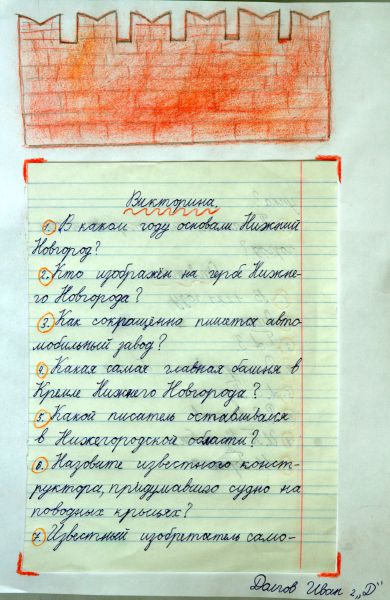 Викторина
1. В каком году основали Нижний
Новгород?
2. Кто изображён на гербе Нижне-
го Новгорода?
3. Как сокращённо пишется авто-
мобильный завод?
4. Какая самая главная башня в
Кремле Нижнего Новгорода?
5. Какой писатель оставлился
в Нижегородской области?
6. Назовите известного конст-
руктора, придумавшего судно на
подводных крыльях?
7. Известный изобретатель само-
Долгов Иван 2 „Д"